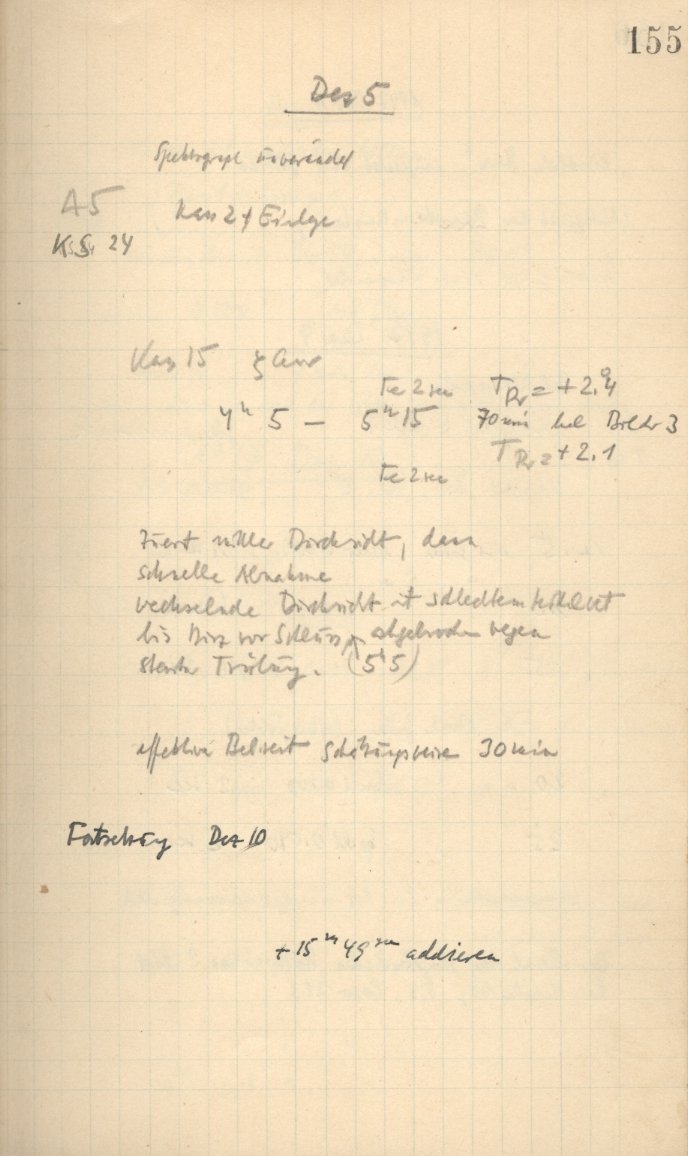 155
Dez 5
Spektrograph unverändert
A5
Kass 24 Einlge
K.S. 24
Kass 15 ζ Aur
Fe 2 sec T Pr = +2.4
4ʰ 5 — 5ʰ 15 70 min hel Bilder 3
T Pr = +2.1
Fe 2 sec
Zuerst mittlere Durchsicht, dann
schnelle Abnahme
wechselnde Durchsicht mit schlechtem
bis kurz vor Schluss, abgebrochen wegen
starker Trübung. (5ʰ5)
effektive Belzeit schätzungsweise 30 min
Fortsetzung Dez 10
+ 15ᵐ 49ˢᵉᶜ addieren